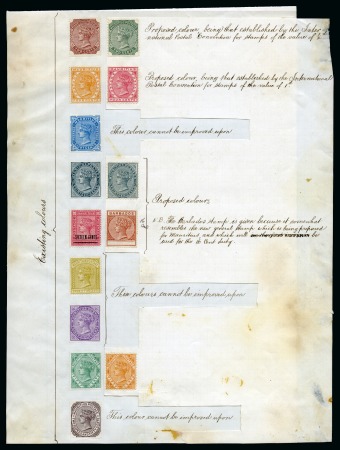 Proposed colour, being that established by the Inter-
national Postal Convention for stamps of the value of ½
Proposed colour, being that established by the International
Postal Convention for stamps of the value of 1
This colour cannot be improved upon
Proposed colours
N.B. The Barbados stamp is given because it somewhat
resembles the new general stamp which is being prepared
for Mauritius, and which will be
used for the 16 Cent duty.
Existing colours
BARBADOS
These colours cannot be improved upon
This colour cannot be improved upon